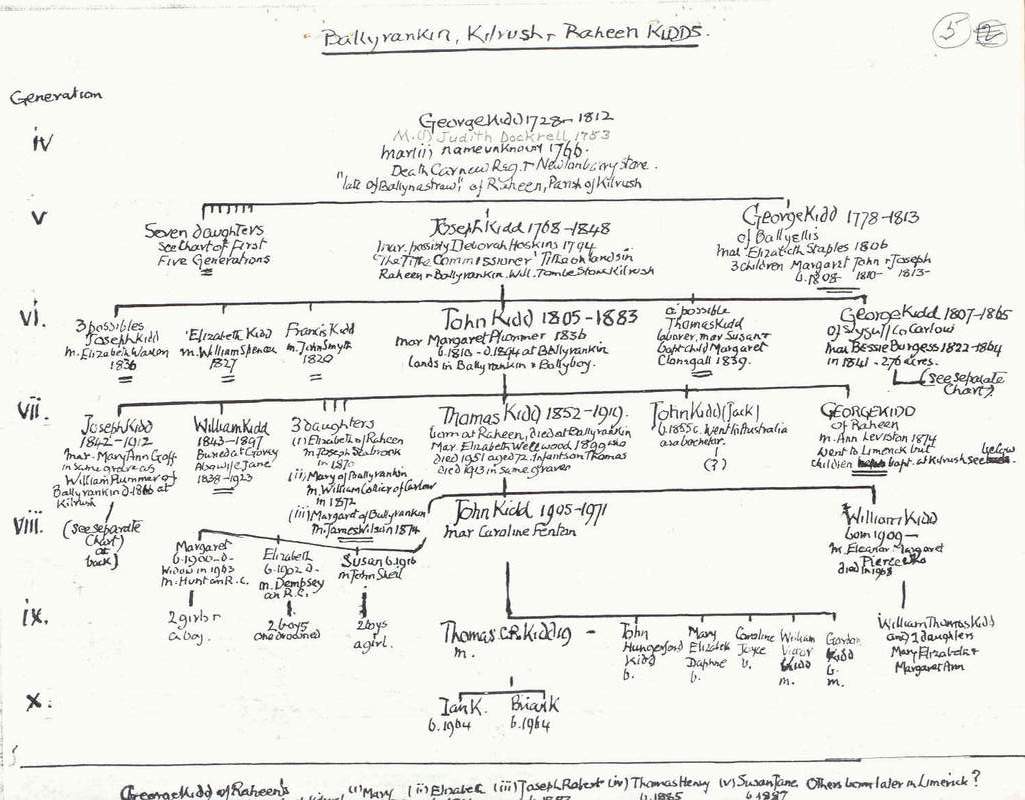 Ballyrankin, Kilrush + Raheen KIDDS.
5
Generation
iv
George Kidd 1728 - 1812
M.(i) Judith Dockrell 1753
mar(ii) name unknown 1766.
Death Carnew Reg. +
"late of Ballynastraw," of Raheen, Parish of Kilrush
v
Seven daughters
see Chart of First
Five Generations
Joseph Kidd 1768 - 1848
mar. possibly Deborah Hoskins 1794
'The Tithe Commissioner' Tithe on lands in
Raheen + Ballyrankin. Will. Tombe Stone Kilrush
George Kidd 1778 - 1813
of Ballyellis
mar Elizabeth Staples 1806
3 children Margaret John + Joseph
b. 1808- 1810- 1813-
vi.
3 possibles
Joseph Kidd
m. Elizabeth
1836
Elizabeth Kidd
m. William Spencer
1827
Francis Kidd
m. John Smyth
1820
John Kidd 1805 - 1883
mar Margaret Plummer 1836
b. 1810 - d. 1894 at Ballyrankin
lands in Ballyrankin + Ballyboy.
a possible
Thomas Kidd
laborer, mar Susan +
bapt child Margaret
Clonegall 1839.
George Kidd 1807-1865
Co Carlow
mar Bessie Burgess 1822-1864
in 1841 - 276 acres.
(see separate
Chart)
vii
Joseph Kidd
1842 - 1912
mar. Mary Ann Goff
in same grave as
William Plummer of
Ballyrankin d. 1866 at
Kilrush
(see separate
Chart)
at
back)
William Kidd
1843 - 1897
Buried at Gorey
Also wife Jane
1838 - 1923
3 daughters
(i) Elizabeth of Raheen
m. Joseph
in 1870
(ii) Mary of Ballyrankin
m. William Collier of Carlow
in 1872
(iii) Margaret of Ballyrankin
m. James Wilson 1874
Thomas Kidd 1852 - 1919.
born at Raheen, died at Ballyrankin
Mar. Elizabeth Wellwood 1899 who
died 1951 aged 72. Infant son Thomas
died 1913 in same grave
John Kidd (Jack)
b. 1855c. Went to Australia
as a bachelor.
(?)
GEORGE KIDD
of Raheen
m. Ann Leviston 1874
Went to Limerick but
children bapt. at Kilrush see below
viii.
John Kidd 1905 - 1971
mar Caroline Fenton
William Kidd
born 1909 -
m. Eleanor Margaret
Pierce who
died in 1968
Margaret
b. 1900 - d-
Widow in 1963
m. Hunt an R.C.
Elizabeth
b. 1902 d-
m. Dempsey
an R.C.
Susan b. 1916
m John Sheil
ix.
2 girls +
a boy.
2 boys
one drowned
2 boys
a girl.
Thomas C.R. Kidd
m.
John
Hungerford
Kidd
b.
Mary
Elizabeth
Daphne
b.
Caroline
Joyce
b.
William
Victor
Kidd
m.
Gordon
Kidd
b.
m.
William Thomas Kidd
and 2 daughters
Mary Elizabeth +
Margaret Ann
x.
Ian K.
b. 1964
Brian K
b. 1964
George Kidd of Raheen's
(i) Mary (ii) Elizabeth (iii) Joseph Robert (iv) Thomas Henry (v) Susan Jane Others born later in Limerick?
b. 1885 b. 1887